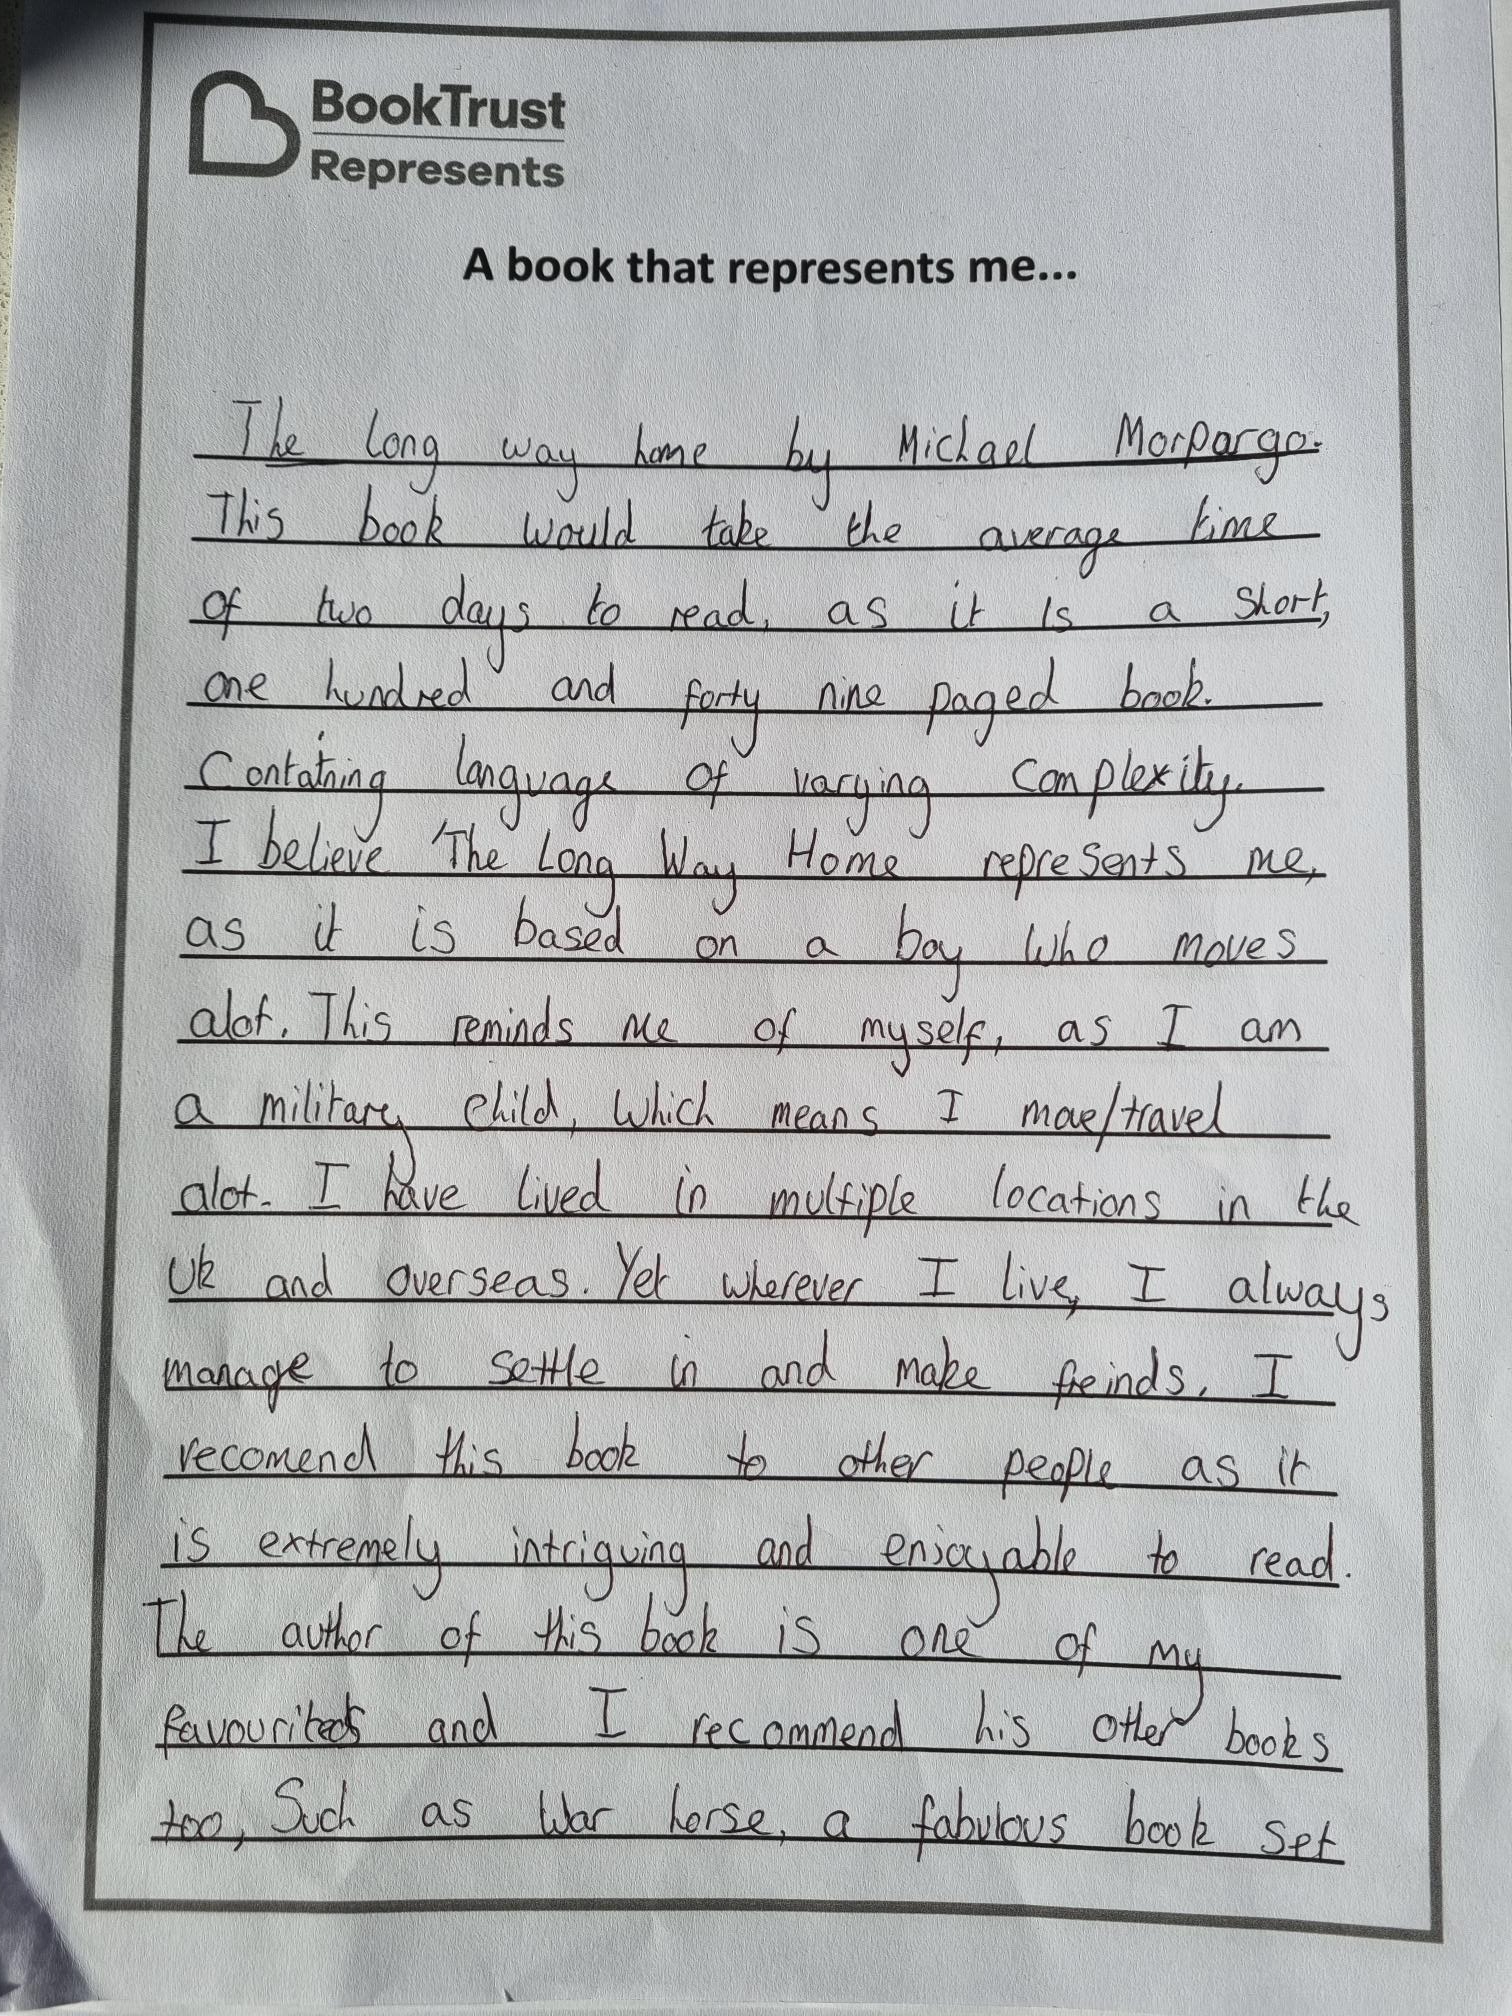 BookTrust
Represents
A book that represents me...
The long way home by Michael Morpargo.
This book would take the average time
of two days to read, as it is a short,
one hundred and forty nine paged book.
Containing language of varying complexity.
I believe 'The Long Way Home represents me,
as it is based on a boy who moves
alot. This reminds me of myself, as I am
a military child, which means I move/travel
alot. I have lived in multiple locations in the
Uk and overseas. Yet wherever I live, I always
manage to settle in and make freinds. I
recomend this book to other people as it
is extremely intriguing and enjoyable to read.
The author of this book is one of my
and I recommend his other books
too, Such as War horse, a fabulous book set